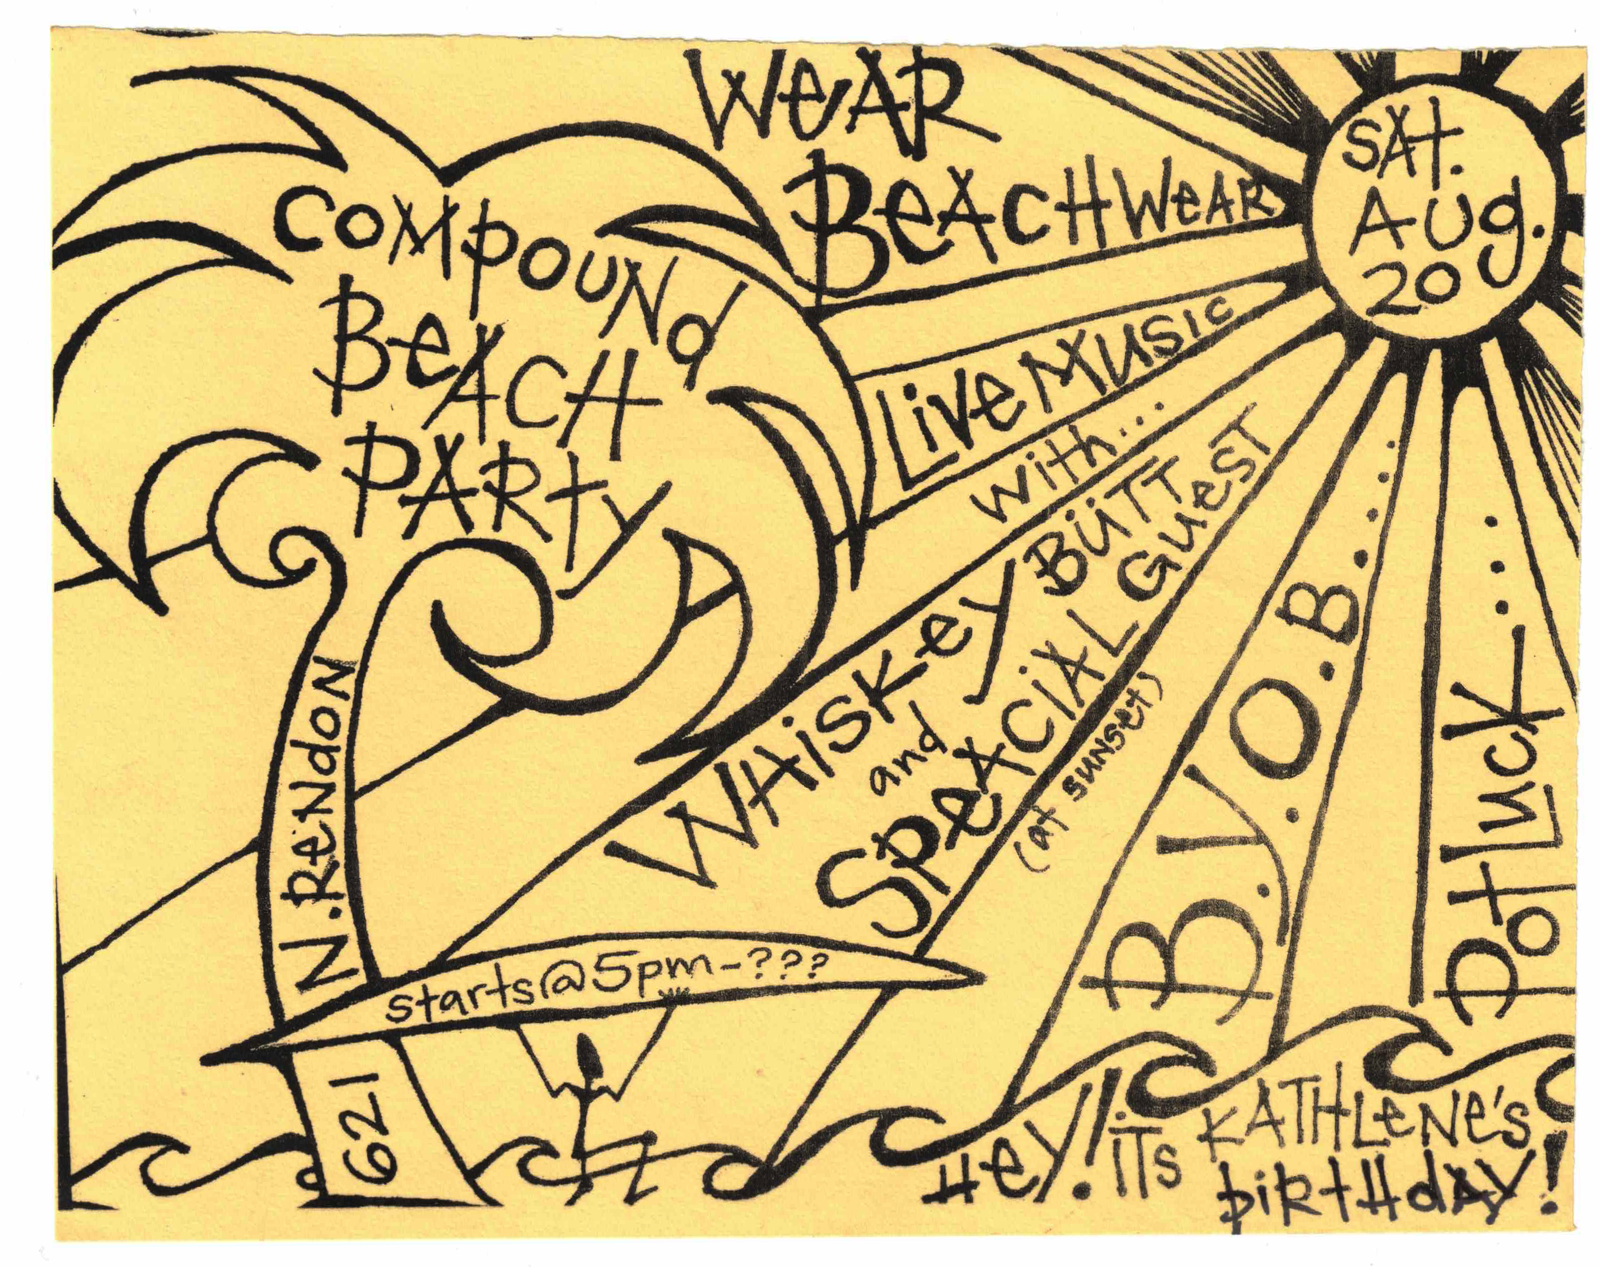 COMPOUNd
BeACH
PARty
WeAR
BeACHWeAR
SAt.
AUg.
20
LiveMUSic
with...
WHiSKey BUTT
and
SPeACiAL GUeST
(at sunset)
B.Y.O.B....
PotLucK...
N.RENdoN
621
starts@5pm-???
Hey! iTs KATHLeNe's
biRtHdAy!